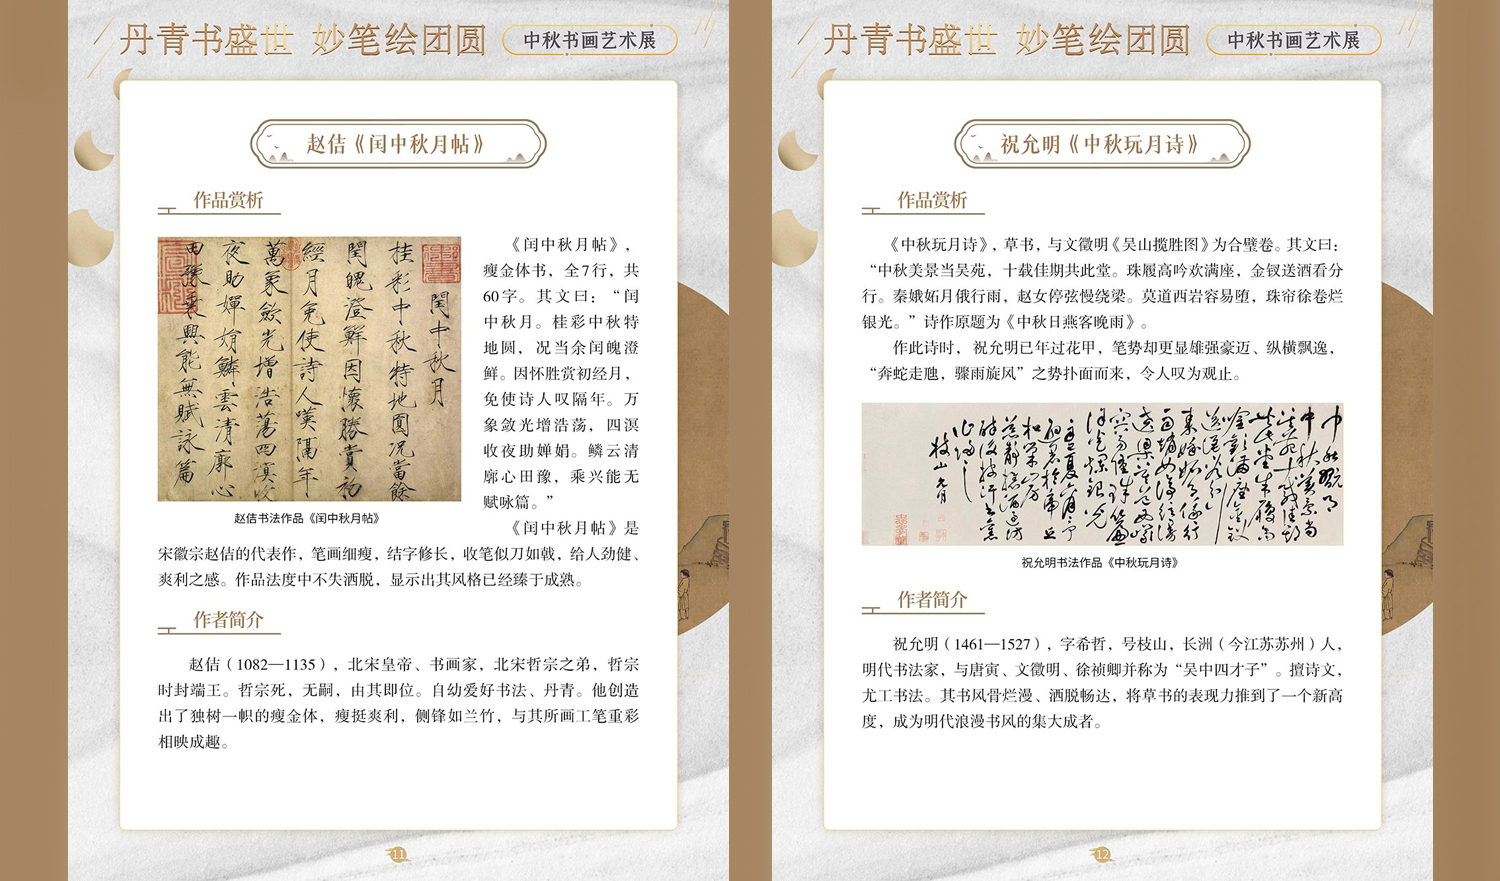 丹青书盛世 妙笔绘团圆 中秋书画艺术展
赵佶《闰中秋月帖》
作品赏析
桂彩中秋特地圓況當餘
閏魄澄鮮因懷勝賞初
經月免使詩人嘆隔年
萬象斂光增浩蕩四溟收
夜助嬋娟鱗雲清廓心
田豫乘興能無賦詠篇
閏中秋月
赵佶书法作品《闰中秋月帖》
《闰中秋月帖》,
瘦金体书，全7行，共
60字。其文曰：“闰
中秋月。桂彩中秋特
地圆，况当余闰魄澄
鲜。因怀胜赏初经月，
免使诗人叹隔年。万
象敛光增浩荡，四溟
收夜助婵娟。鳞云清
廓心田豫，乘兴能无
赋咏篇。”
《闰中秋月帖》是
宋徽宗赵佶的代表作，笔画细瘦，结字修长，收笔似刀如戟，给人劲健、
爽利之感。作品法度中不失洒脱，显示出其风格已经臻于成熟。
作者简介
赵佶（1082—1135），北宋皇帝、书画家，北宋哲宗之弟，哲宗
时封端王。哲宗死，无嗣，由其即位。自幼爱好书法、丹青。他创造
出了独树一帜的瘦金体，瘦挺爽利，侧锋如兰竹，与其所画工笔重彩
相映成趣。
11
丹青书盛世 妙笔绘团圆 中秋书画艺术展
祝允明《中秋玩月诗》
作品赏析
《中秋玩月诗》，草书，与文徵明《吴山揽胜图》为合璧卷。其文曰：
“中秋美景当吴苑，十载佳期共此堂。珠履高吟欢满座，金钗送酒看分
行。秦娥妬月俄行雨，赵女停弦慢绕梁。莫道西岩容易堕，珠帘徐卷烂
银光。”诗作原题为《中秋日燕客晚雨》。
作此诗时，祝允明已年过花甲，笔势却更显雄强豪迈、纵横飘逸，
“奔蛇走虺，骤雨旋风”之势扑面而来，令人叹为观止。
祝允明书法作品《中秋玩月诗》
作者简介
祝允明（1461—1527），字希哲，号枝山，长洲（今江苏苏州）人，
明代书法家，与唐寅、文徵明、徐祯卿并称为“吴中四才子”。擅诗文，
尤工书法。其书风骨烂漫、洒脱畅达，将草书的表现力推到了一个新高
度，成为明代浪漫书风的集大成者。
12